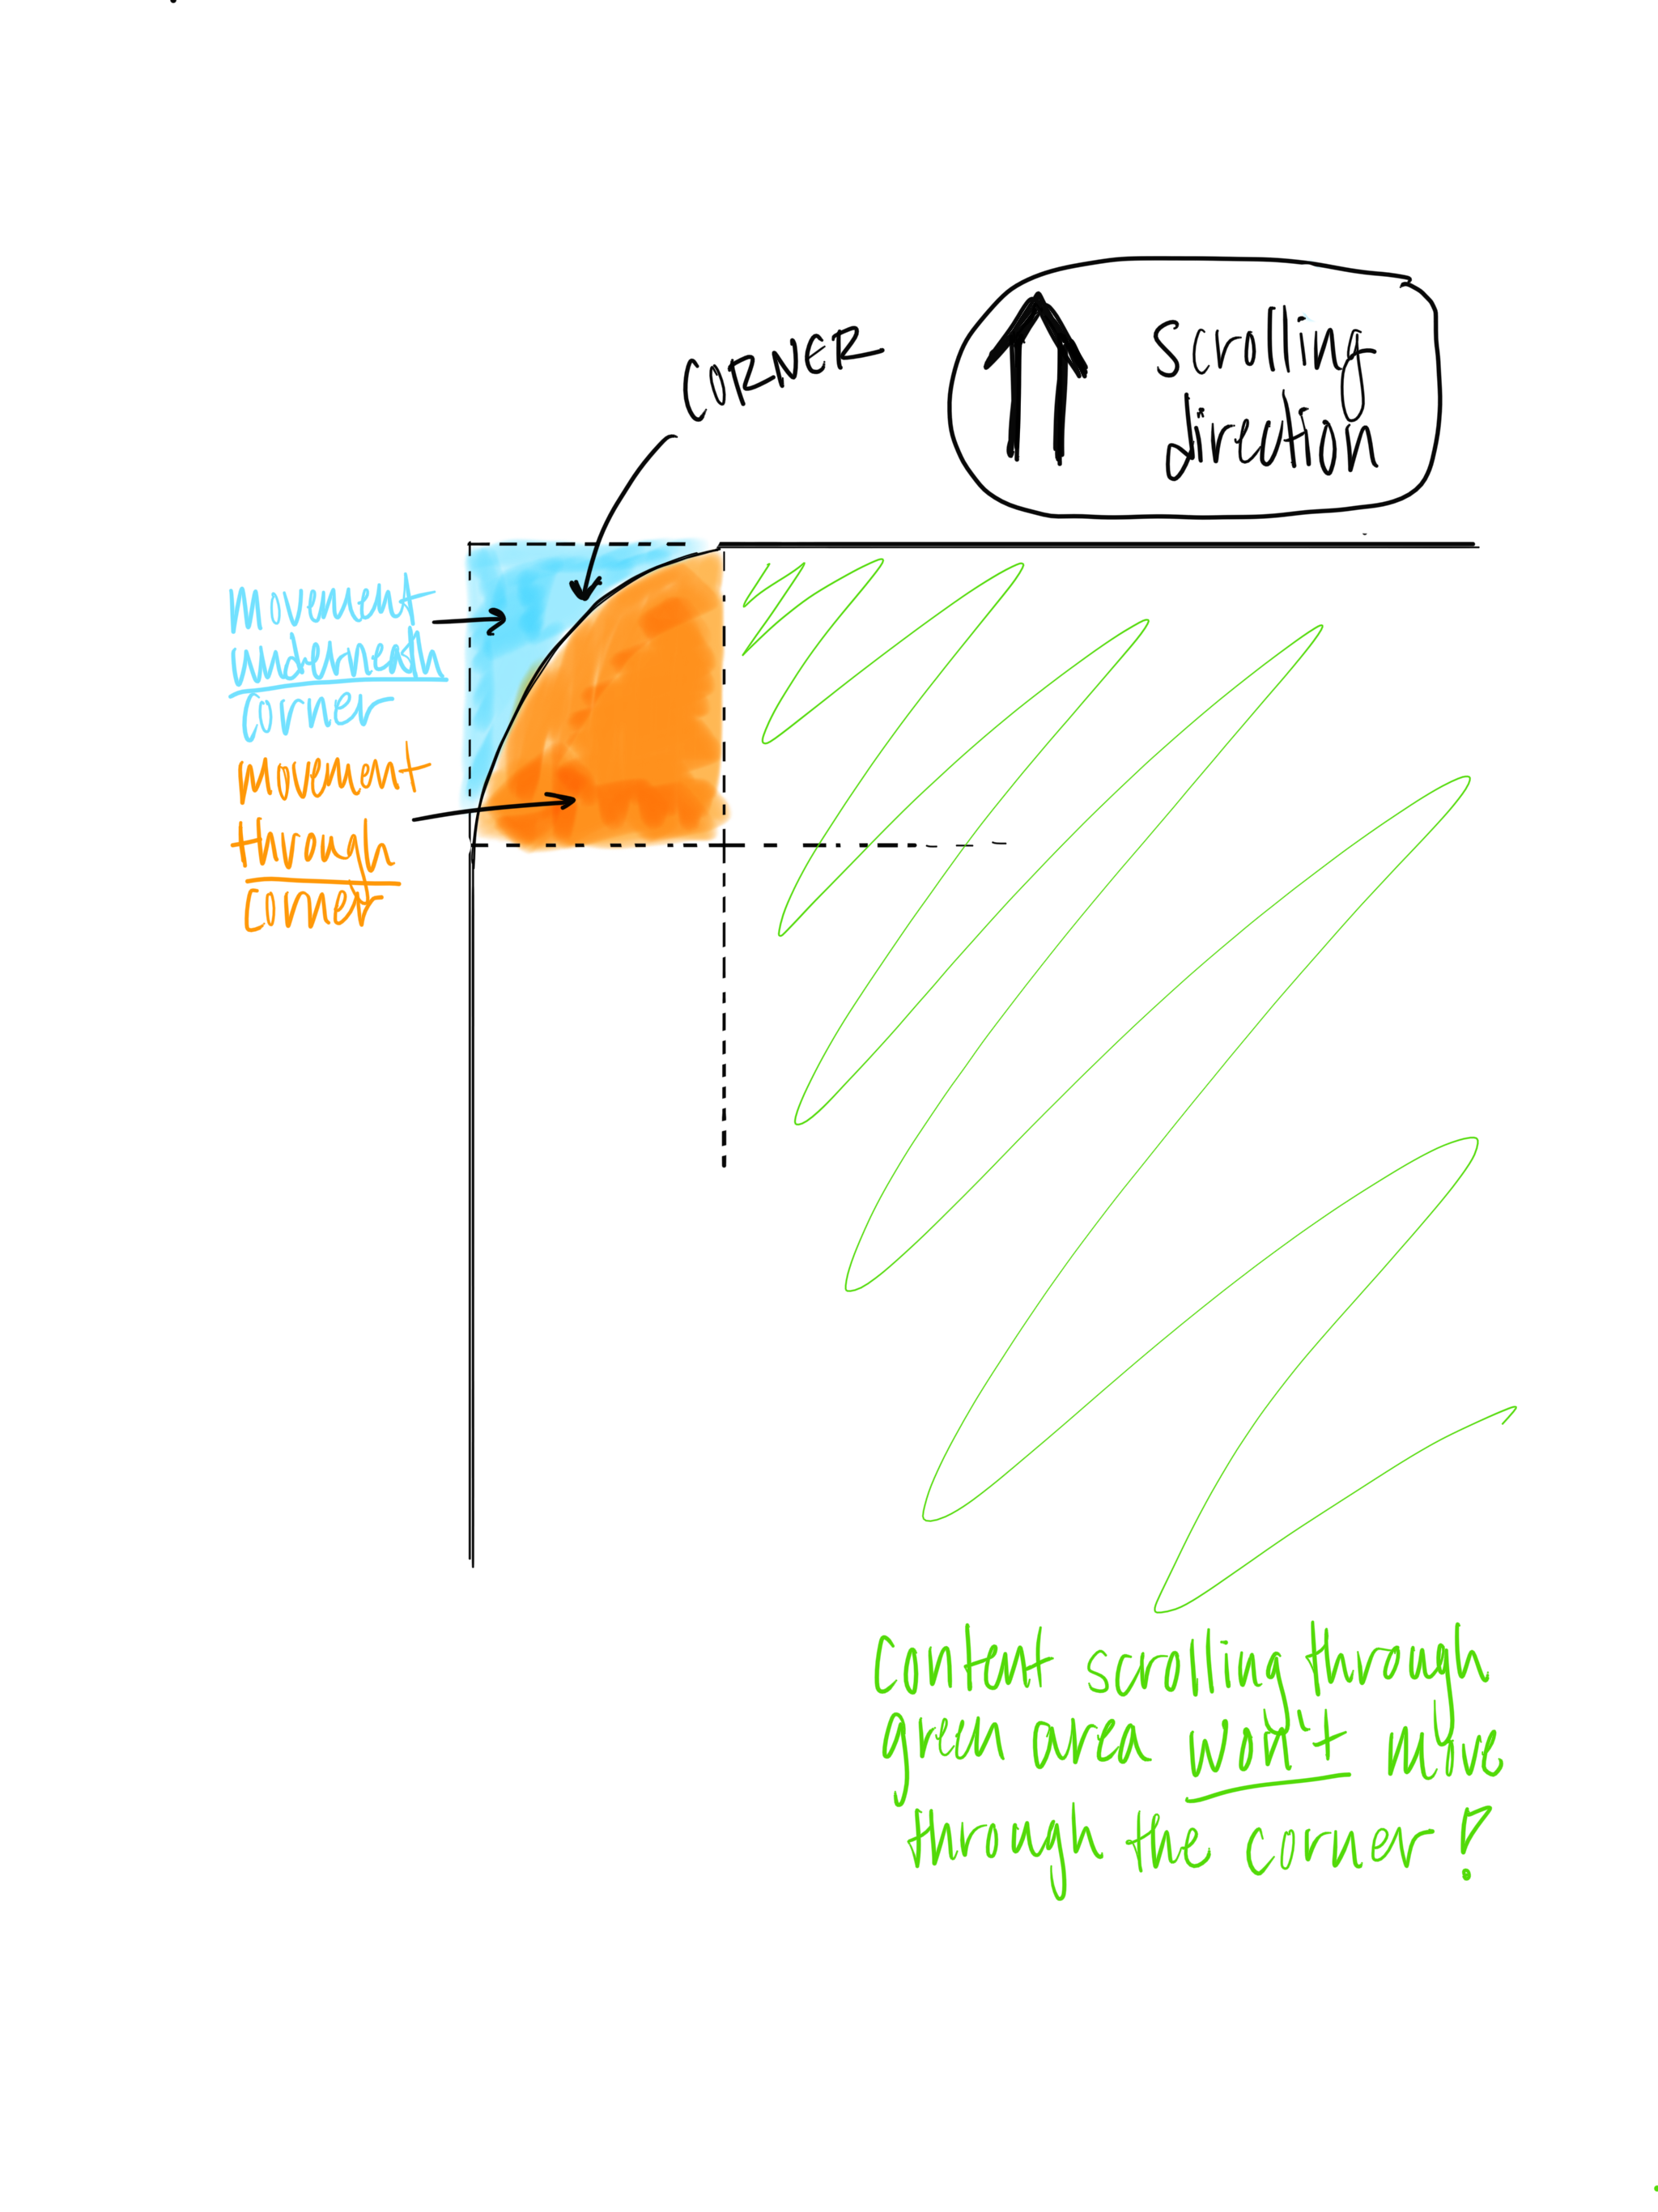 CORNER
scrolling
direction
movement
underneath
corner
movement
through
corner
Content scrolling through
green area won't move
through the corner?